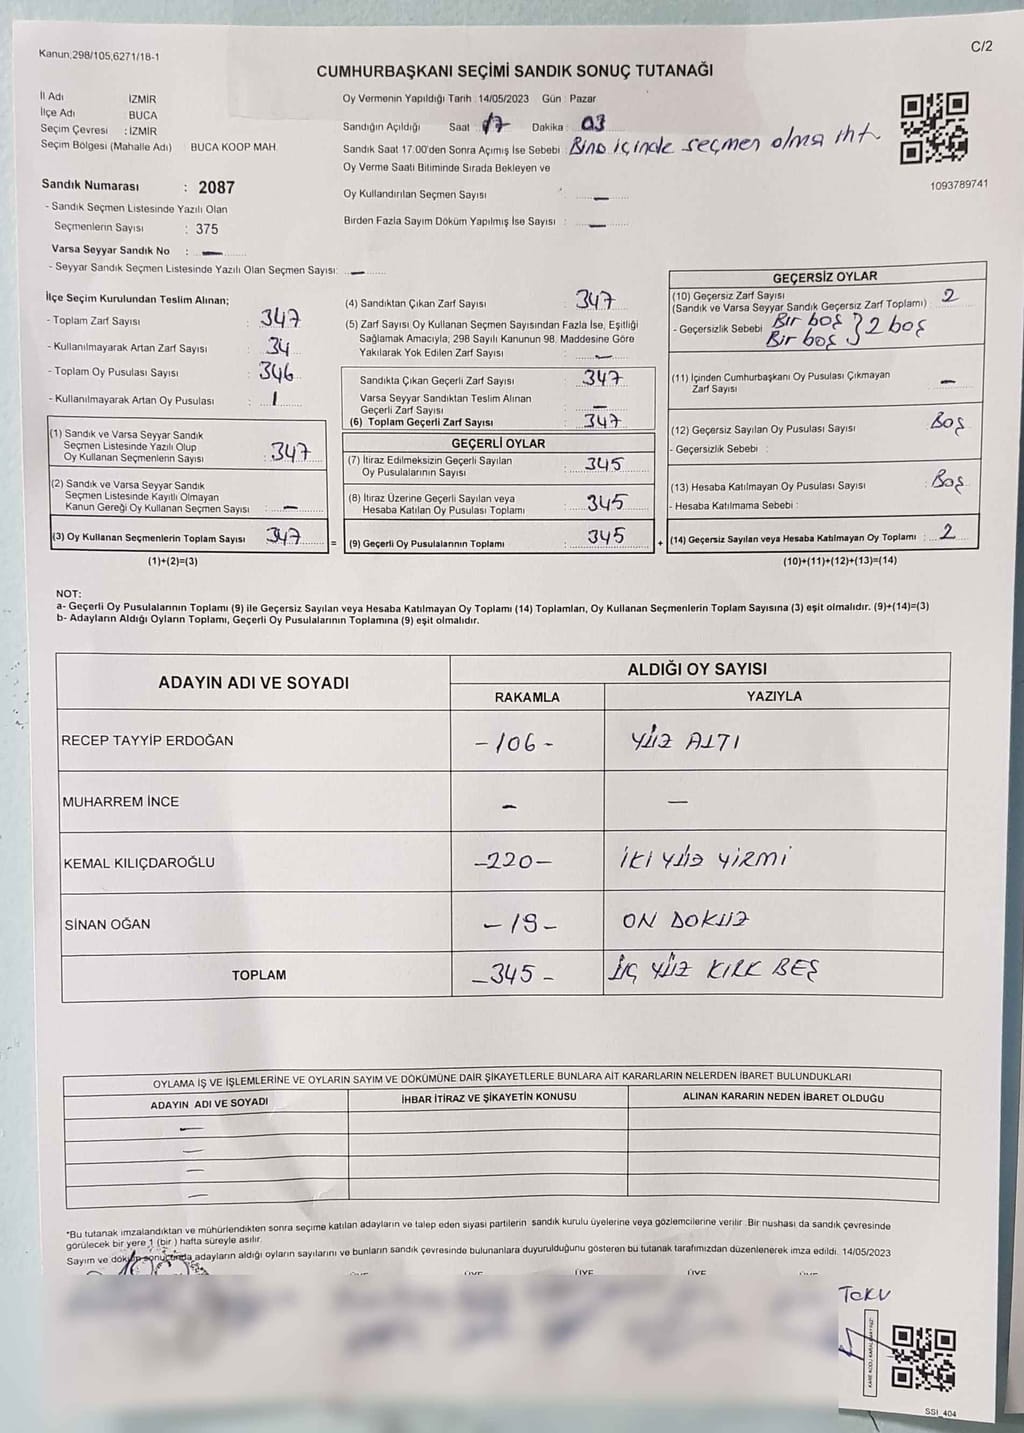 Kanun,298/105,6271/18-1
C/2
CUMHURBAŞKANI SEÇİMİ SANDIK SONUÇ TUTANAĞI
İl Adı İZMİR
İlçe Adı BUCA
Seçim Çevresi : İZMİR
Seçim Bölgesi (Mahalle Adı) BUCA KOOP MAH.
Sandık Numarası : 2087
- Sandık Seçmen Listesinde Yazılı Olan
Seçmenlerin Sayısı : 375
Varsa Seyyar Sandık No : —
- Seyyar Sandık Seçmen Listesinde Yazılı Olan Seçmen Sayısı: —
Oy Vermenin Yapıldığı Tarih : 14/05/2023 Gün : Pazar
Sandığın Açıldığı Saat : 17 Dakika : 03
Sandık Saat 17.00'den Sonra Açımış İse Sebebi : Bina içinde seçmen olma iht.
Oy Verme Saati Bitiminde Sırada Bekleyen ve
Oy Kullandırılan Seçmen Sayısı : —
Birden Fazla Sayım Döküm Yapılmış İse Sayısı : —
1093789741
İlçe Seçim Kurulundan Teslim Alınan;
- Toplam Zarf Sayısı : 347
- Kullanılmayarak Artan Zarf Sayısı : 34
- Toplam Oy Pusulası Sayısı : 346
- Kullanılmayarak Artan Oy Pusulası : 1
(1) Sandık ve Varsa Seyyar Sandık
Seçmen Listesinde Yazılı Olup
Oy Kullanan Seçmenlerin Sayısı : 347
(2) Sandık ve Varsa Seyyar Sandık
Seçmen Listesinde Kayıtlı Olmayan
Kanun Gereği Oy Kullanan Seçmen Sayısı : —
(3) Oy Kullanan Seçmenlerin Toplam Sayısı : 347
(1)+(2)=(3)
(4) Sandıktan Çıkan Zarf Sayısı : 347
(5) Zarf Sayısı Oy Kullanan Seçmen Sayısından Fazla İse, Eşitliği
Sağlamak Amacıyla, 298 Sayılı Kanunun 98. Maddesine Göre
Yakılarak Yok Edilen Zarf Sayısı : —
Sandıkta Çıkan Geçerli Zarf Sayısı : 347
Varsa Seyyar Sandıktan Teslim Alınan
Geçerli Zarf Sayısı : —
(6) Toplam Geçerli Zarf Sayısı : 347
GEÇERLİ OYLAR
(7) İtiraz Edilmeksizin Geçerli Sayılan
Oy Pusulalarının Sayısı : 345
(8) İtiraz Üzerine Geçerli Sayılan veya
Hesaba Katılan Oy Pusulası Toplamı : 345
= (9) Geçerli Oy Pusulalarının Toplamı : 345
GEÇERSİZ OYLAR
(10) Geçersiz Zarf Sayısı
(Sandık ve Varsa Seyyar Sandık Geçersiz Zarf Toplamı) : 2
- Geçersizlik Sebebi : Bir boş } 2 boş
Bir boş
(11) İçinden Cumhurbaşkanı Oy Pusulası Çıkmayan
Zarf Sayısı : —
(12) Geçersiz Sayılan Oy Pusulası Sayısı : Boş
- Geçersizlik Sebebi :
(13) Hesaba Katılmayan Oy Pusulası Sayısı : Boş
- Hesaba Katılmama Sebebi :
+ (14) Geçersiz Sayılan veya Hesaba Katılmayan Oy Toplamı : 2
(10)+(11)+(12)+(13)=(14)
NOT:
a- Geçerli Oy Pusulalarının Toplamı (9) ile Geçersiz Sayılan veya Hesaba Katılmayan Oy Toplamı (14) Toplamları, Oy Kullanan Seçmenlerin Toplam Sayısına (3) eşit olmalıdır. (9)+(14)=(3)
b- Adayların Aldığı Oyların Toplamı, Geçerli Oy Pusulalarının Toplamına (9) eşit olmalıdır.
ADAYIN ADI VE SOYADI ALDIĞI OY SAYISI
RAKAMLA YAZIYLA
RECEP TAYYİP ERDOĞAN -106- YÜZ ALTI
MUHARREM İNCE — —
KEMAL KILIÇDAROĞLU -220- İKİ YÜZ YİRMİ
SİNAN OĞAN -19- ON DOKUZ
TOPLAM -345- ÜÇ YÜZ KIRK BEŞ
OYLAMA İŞ VE İŞLEMLERİNE VE OYLARIN SAYIM VE DÖKÜMÜNE DAİR ŞİKAYETLERLE BUNLARA AİT KARARLARIN NELERDEN İBARET BULUNDUKLARI
ADAYIN ADI VE SOYADI İHBAR İTİRAZ VE ŞİKAYETİN KONUSU ALINAN KARARIN NEDEN İBARET OLDUĞU
—
—
—
—
*Bu tutanak imzalandıktan ve mühürlendikten sonra seçime katılan adayların ve talep eden siyasi partilerin sandık kurulu üyelerine veya gözlemcilerine verilir. Bir nushası da sandık çevresinde
görülecek bir yere 1 (bir ) hafta süreyle asılır.
Sayım ve döküm sonucunda adayların aldığı oyların sayılarını ve bunların sandık çevresinde bulunanlara duyurulduğunu gösteren bu tutanak tarafımızdan düzenlenerek imza edildi. 14/05/2023
ÜYE ÜYE ÜYE ÜYE
SSI_404